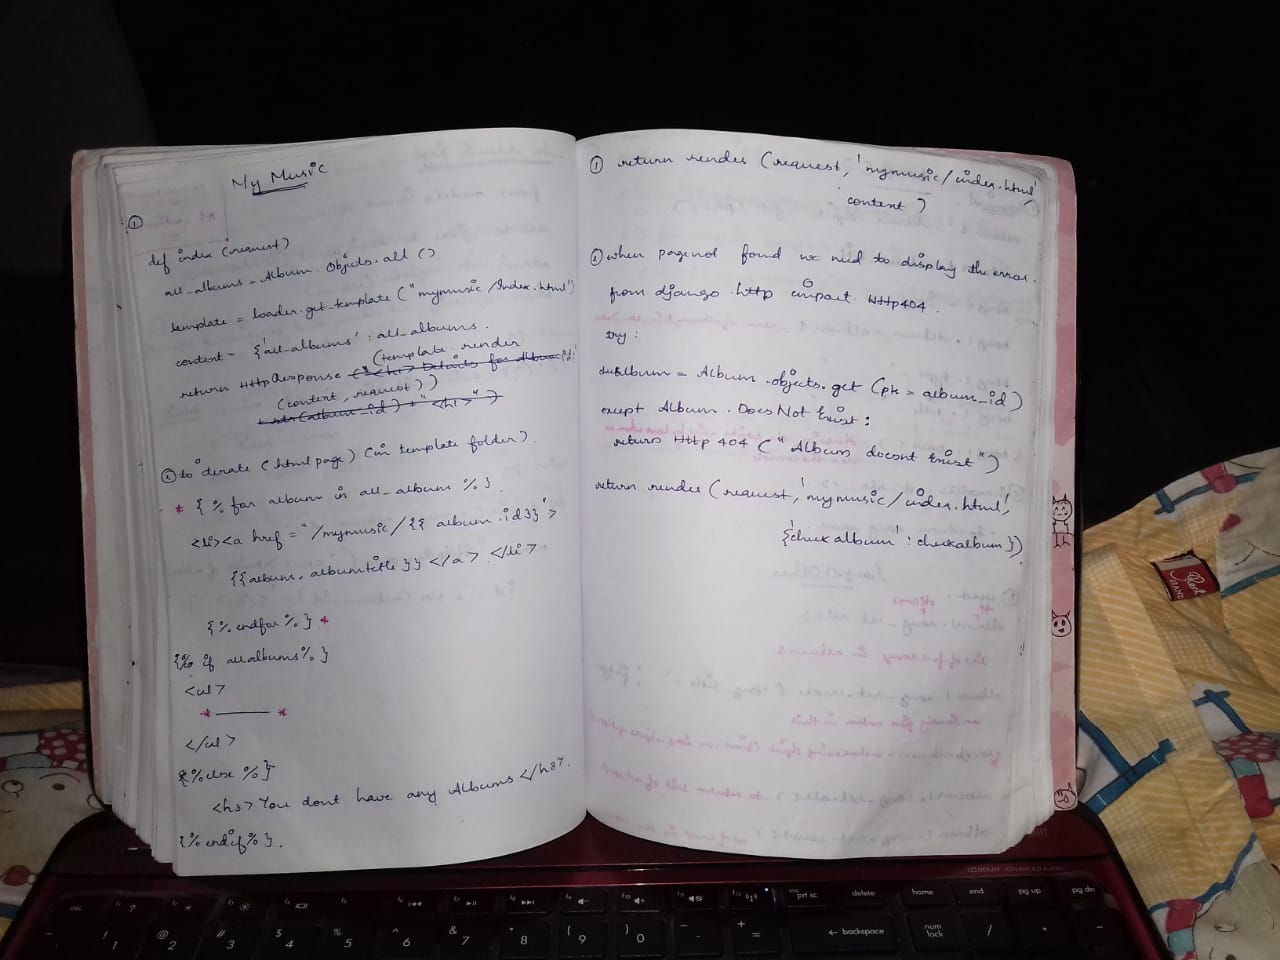 My Music
①
def index (request)
all_albums = Album. Objects. all ()
template = loader. get_template ("mymusic /Index. html')
content = {'all-albums' : all_albums.
(template. render
return HttpResponse ("<h1> Details for Album id:'
(content, request))
+ str(album_id) + "<h1>")
② to iterate (html page) (in template folder)
* { % for album in all_albums % }
<li><a href = "/mymusic /{{ album .id}}' >
{{album. albumtitle }} </a> </li>
{% endfor % } *
{% if all albums % }
<ul>
* ——— *
</ul>
{% else % }
<h3> You dont have any Albums </h3>.
{% endif % }.
① return render (request, 'mymusic / index. html'
content )
② when page not found we need to display the error.
from django .http import Http404.
try :
album = Album .objects. get (pk = album_id)
except Album . Does Not Exist :
return Http 404 (" Album doesnt Exist")
return render (request, 'mymusic / index. html',
{'check album" : checkalbum })
esc
f1 ?
prt sc
delete
home
end
pg up
pg dn
! 1
@ 2
# 3
$ 4
% 5
^ 6
& 7
* 8
( 9
) 0
+ =
← backspace
num lock
/
DOLBY ADVANCED AUDIO